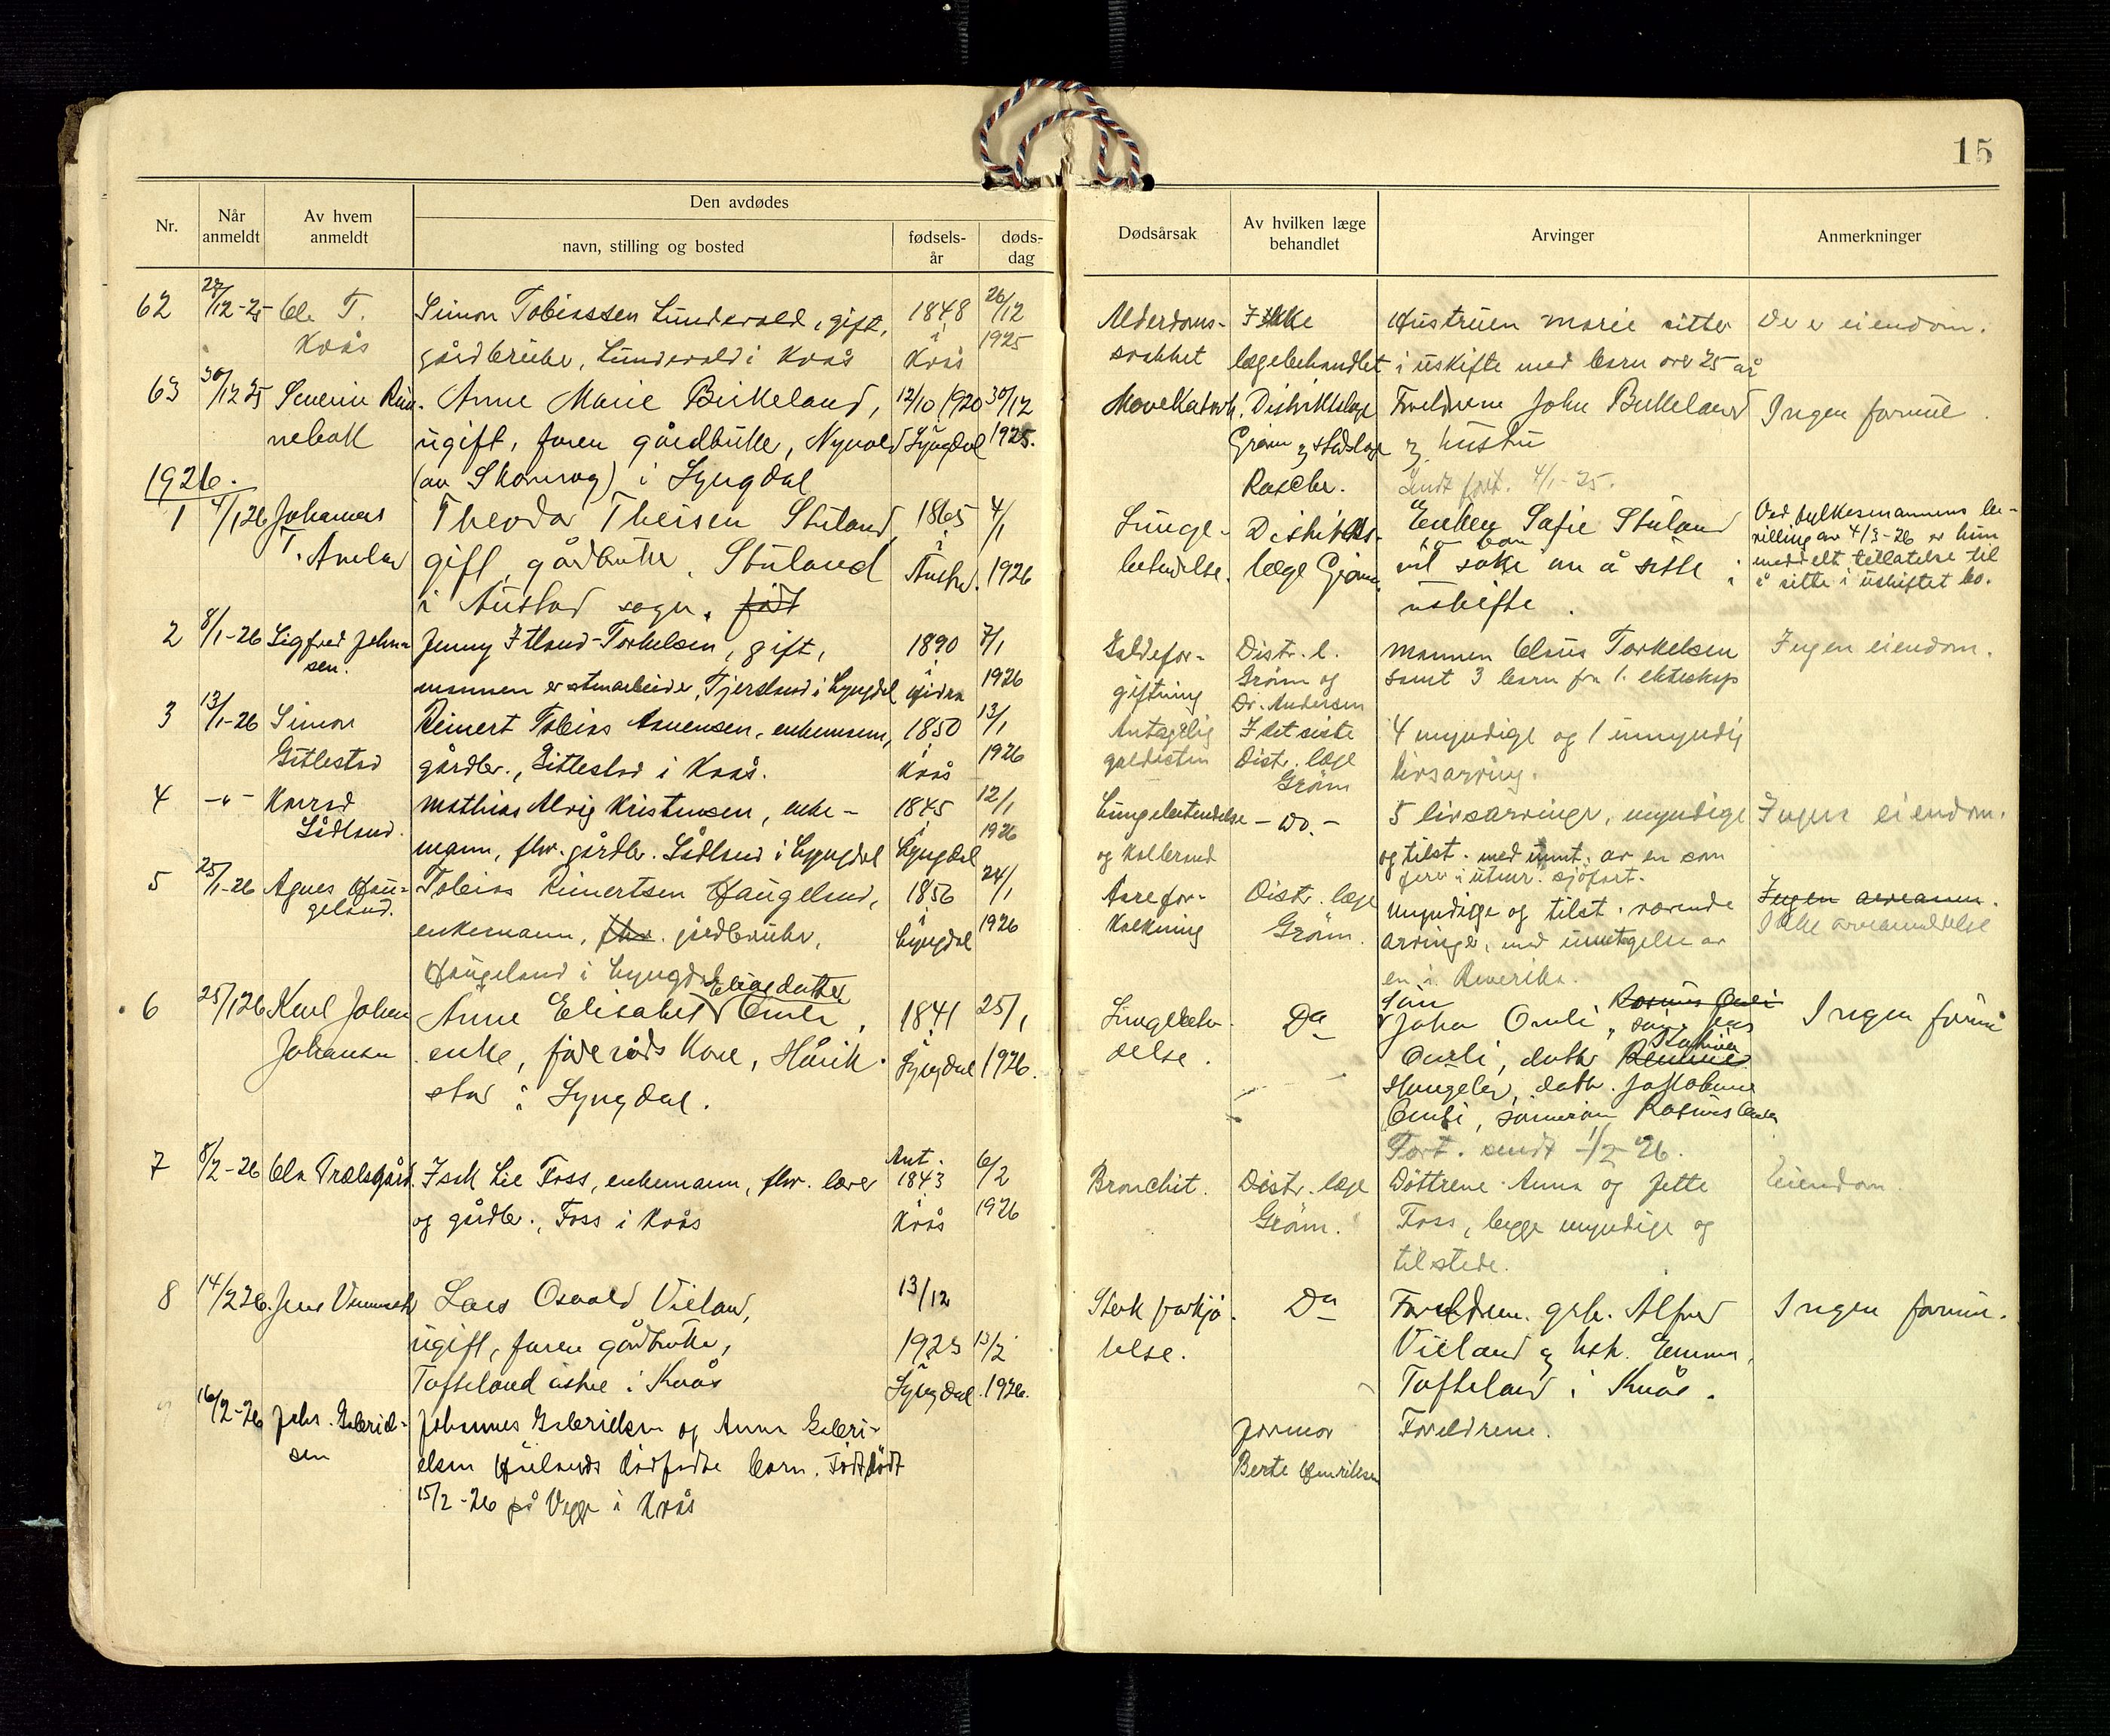 15
Nr.
Når anmeldt
Av hvem anmeldt
Den avdødes
navn, stilling og bosted
fødsels-år
døds-dag
Dødsårsak
Av hvilken læge behandlet
Arvinger
Anmerkninger
62 27/12-25 Ole T. Simon Tobiassen Lundevold, gift, 1848 26/12 Alderdoms- Ikke Hustruen Marie sitter De er eiendom.
Kvås gårdbruker, Lundevold i Kvås i Kvås 1925 svakhet lægebehandlet i uskifte med barn over 25 år
63 30/12 25 Severin Rin- Anne Marie Birkeland, 12/10 1920 30/12 Mavekatarrh. Distriktslæge Foreldrene John Birkeland Ingen formue.
nebakk ugift, faren gårdbruker, Nyvold Lyngdal 1925. Grønn og stadslæge og hustru
(av Skomrag) i Lyngdal Rascher. Sendt fort. 4/1-25.
1926.
1 4/1 26 Johannes Theodor Theisen Stuland, 1865 4/1 Lunge- Distrikts- Enken Sofie Stuland Ved fylkesmannens be-
T. gift, gårdbruker, Stuland i Austad. 1926 betendelse. læge Grønn. vil søke om å sitte i villing av 4/3-26 er hun
i Austad sogn. født uskifte. meddelt tillatelse til
å sitte i uskiftet bo.
2 8/1-26 Sigfred Johan- Jenny Itland-Torkelsen, gift, 1890 7/1 Galdefor- Distr. l. Mannen Claus Torkelsen Ingen eiendom.
sen. mannen er arbeider, Tjersland i Lyngdal i Hidra 1926 giftning Grønn og samt 3 barn fra 1. ekteskap
Dr. Andersen
3 13/1-26 Simon Reinert Tobias Asuensen, enkemann, 1850 13/1 Antagelig I det siste 4 myndige og 1 umyndig
Gitlestad gårdbr., Gitlestad i Kvås. i Kvås 1926 galdesten Distr. læge livsarving.
Grønn
4 -"- Konrad Mathias Alvig Kristensen, enke- 1845 12/1 Lungebetendelse - Do. - 5 livsarvinger, myndige Ingen eiendom.
Lådland. mann, fhv. gårdbr. Lådland i Lyngdal i Lyngdal 1926 og koldbrand og tilst. med unnt. av en som
farer i utenr. sjøfart.
5 25/1-26 Agnes Hau- Tobias Reinertsen Haugeland, 1856 24/1 Aarefor- Distr. læge Myndige og tilst. værende Ingen
geland. enkemann, fhv. gårdbruker, i Lyngdal 1926 kalkning Grønn. arvinger, med unntagelse av Ikke arveanmeldelse
Haugeland i Lyngdal en i Amerika.
6 25/1 26 Karl Johan Anne Elisabet Eliasdatter Omli, 1841 25/1 Lungebeten- Do Søn John Omli, Rasmus Omli Ingen formue
Johansen enke, føderåds kone, Hårik- i Lyngdal 1926. delse. Omli, datter
stad i Lyngdal. Haugeland, datter Jakobine
Omli, sønnesøn Rasmus Omli
Fort. sendt 1/2-26.
7 8/2-26 Ole Trælsgård. Isak Lie Foss, enkemann, fhv. lærer Ant. 1843 6/2 Bronchit. Distr. læge Døttrene Anna og Jette Eiendom.
og gårdbr., Foss i Kvås i Kvås 1926 Grønn. Foss, begge myndige og
tilstede.
8 14/2 26. Jens Lars Osvald Vieland, 13/12 Sterk forkjø- Do Foreldrene. grbr. Alfred Ingen formue.
ugift, faren gårdbruker, 1925 13/2 lelse. Vieland og hst. Emma,
Tofteland østre i Kvås i Lyngdal. 1926. Tofteland i Kvås.
9 16/2-26 Johs. Gabriel- Johannes Gabrielsen og Anna Gabri- Jormor Foreldrene.
sen elsen Hælands dødfødte barn. Født dødt Berte Henriksen
15/2-26 på Vegge i Kvås